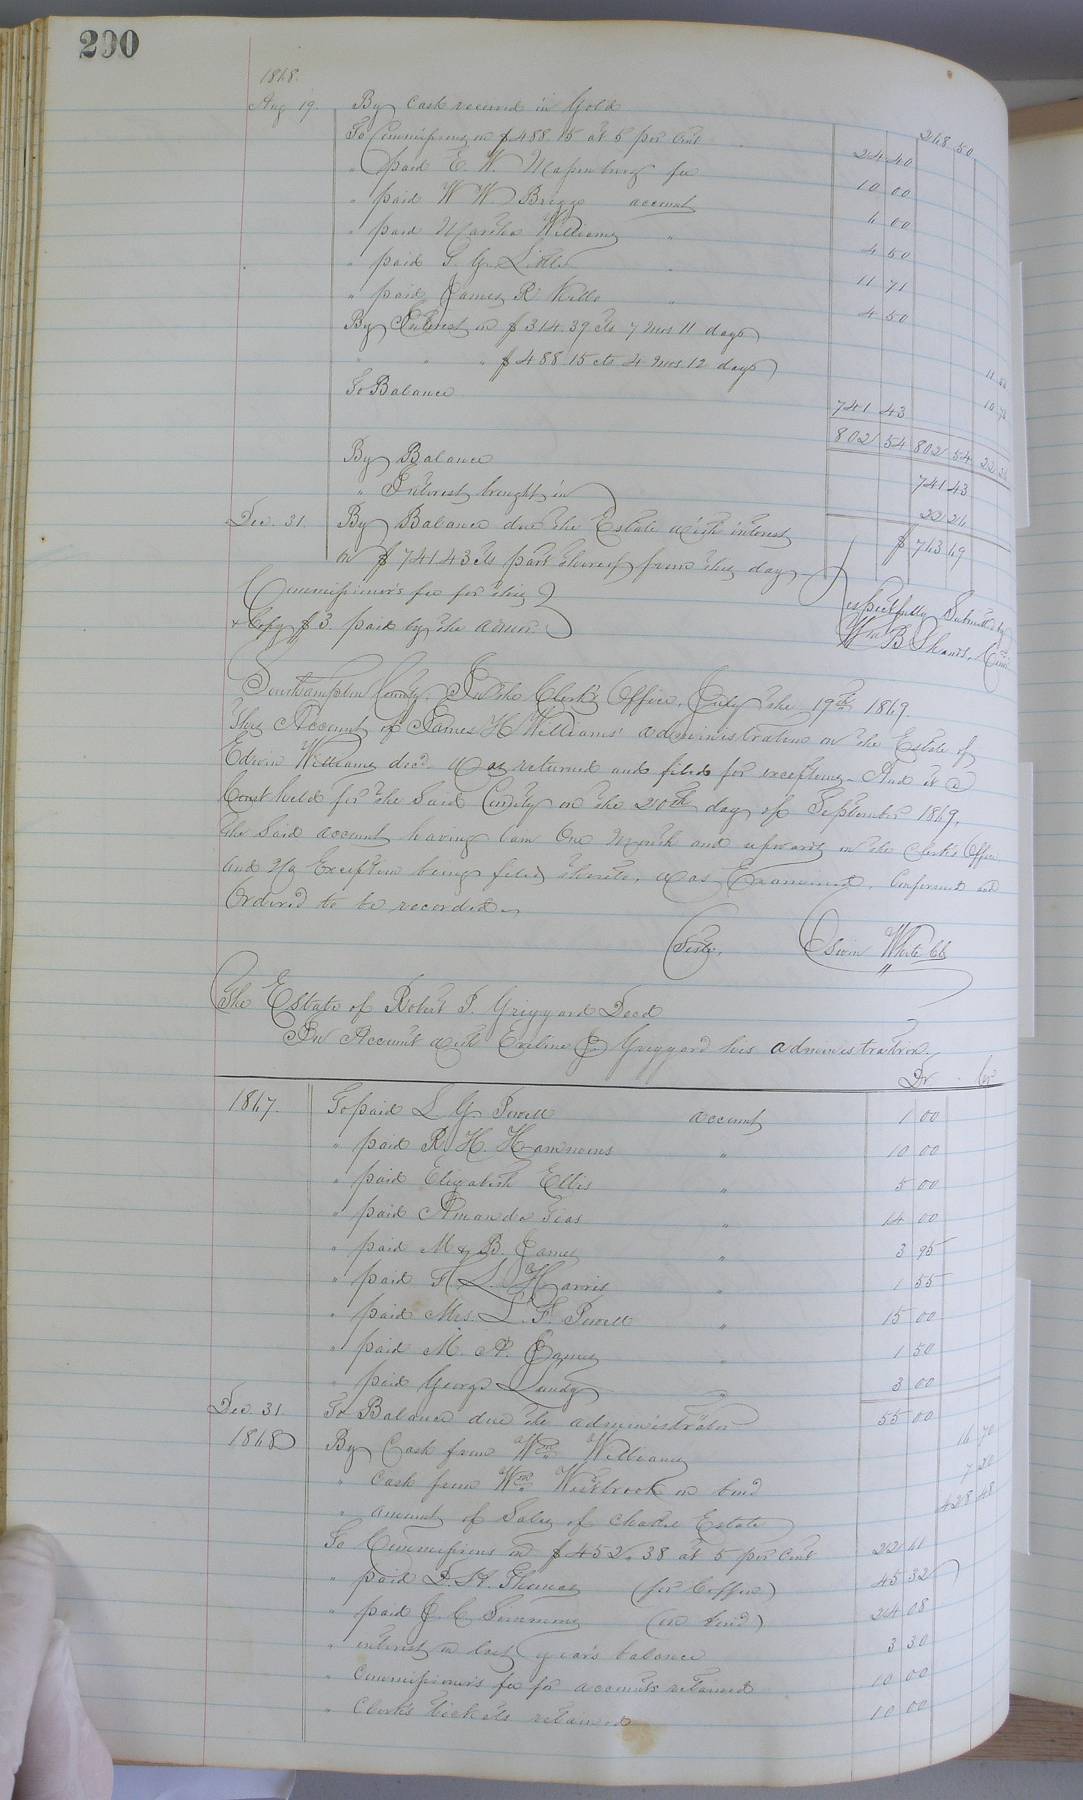 290
1868.
Aug 19. By Cash received in Gold 268 50
To Commissions on $488.15 at 5 per Cent 24 40
" paid E. W. Massenburg fee 10 00
" paid W W. Briggs account 6 00
" paid Martha Williams " 4 50
" paid Little " 11 71
" paid James R Kello " 4 50
By Interest on $314.39 cts 7 mos 11 days 11
" " " $488 15 cts 4 mos 12 days 10
To Balance 741 43
802 54 802 54 22 26
By Balance 741 43
" Interest brought in 22 26
Dec. 31. By Balance due the Estate with interest $763 69
on $741 43 cts part thereof from this day
Commissioner's fee for this
& Copy $3. paid by the admor.
Respectfully Submitted by
Wm B Shands, Comr
Southampton County. In the Clerk's Office, July the 19th 1869.
This Account of James H Williams' administration on the Estate of
Edwin Williams decd. was returned and filed for exceptions. And at a
Court held for the Said County on the 20th day of September 1869.
The Said account having lain One month and upwards in the Clerk's Office
and No Exception being filed thereto, was Examined, Confirmed and
Ordered to be recorded.
Teste, Edwin White CC
The Estate of Robert F. Griggard Decd
In Account with Eveline J Griggard his administratrix.
Dr. Cr
1867. To paid L G Powell account 1 00
" paid R. H. Hammons " 10 00
" paid Elizabeth Ellis " 5 00
" paid Amanda " 14 00
" paid M & B. James " 3 95
" paid H. L. Harris " 1 55
" paid Mrs. L. F. Powell " 15 00
" paid M. A. James " 1 50
" paid George Lundy " 3 00
Dec. 31 To Balance due the administratrix 55 00
1868 By Cash from Wm Williams 16 70
" Cash from Wm Westbrook on bond 7 20
" amount of Sales of Chattel Estate 428 48
To Commissions on $452.38 at 5 per Cent 22 61
" paid Thomas (for Coffin) 45 32
" paid J. C. Simmons (on bond) 24 08
" interest on last year's balance 3 30
" Commissioner's fee for accounts retained 10 00
" Clerk's tickets retained 10 00